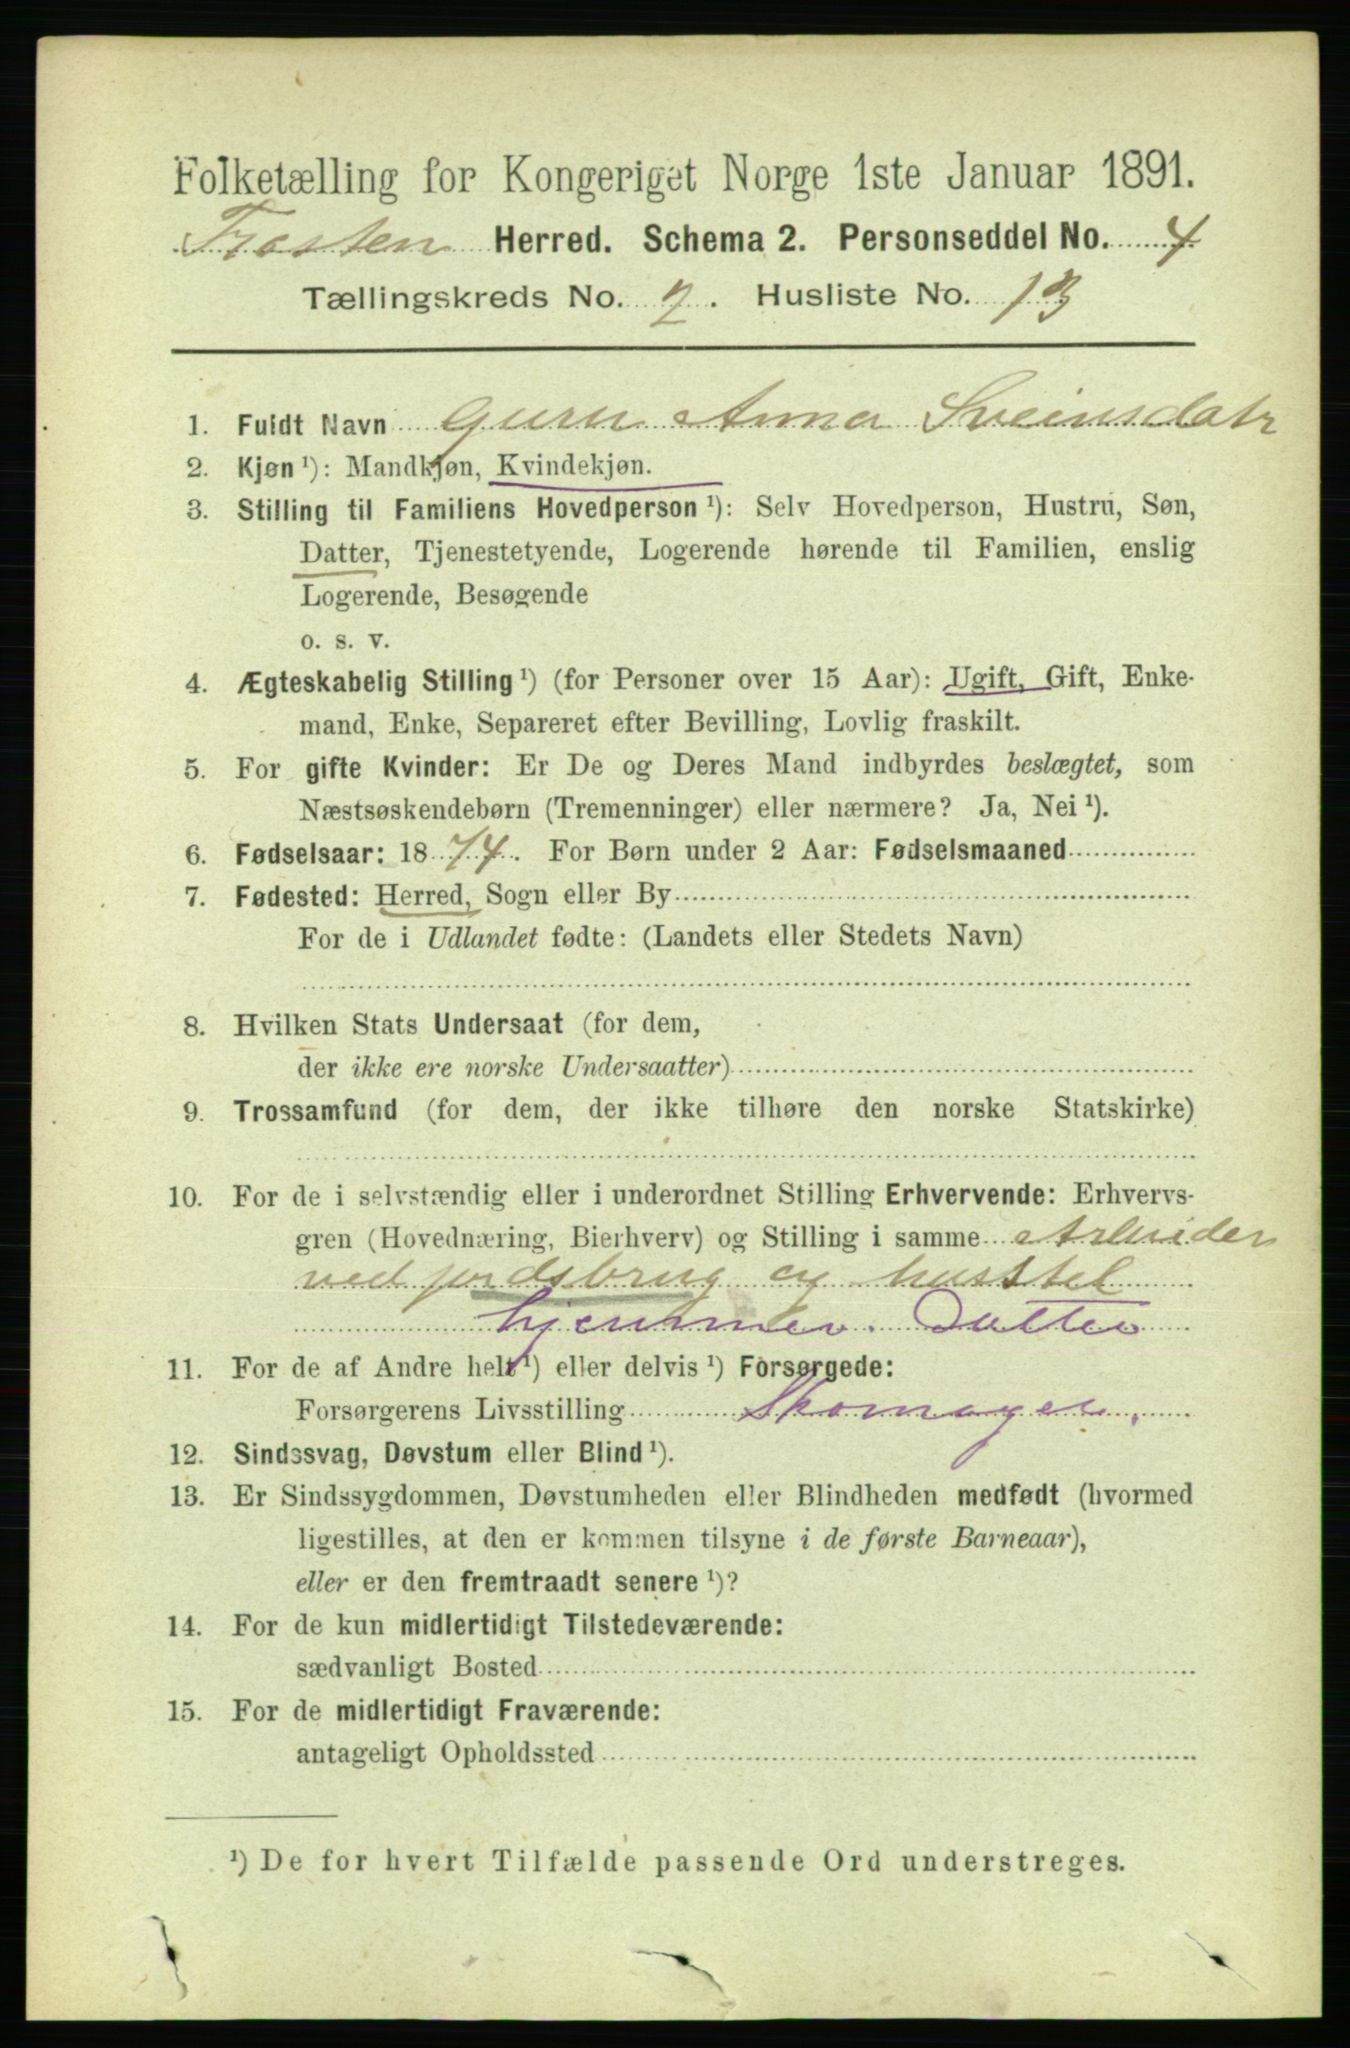 Folketælling for Kongeriget Norge 1ste Januar 1891.
Frosten Herred. Schema 2. Personseddel No. 4
Tællingskreds No. 2. Husliste No. 13
1. Fuldt Navn Guru Anna Sveinsdatr
2. Kjøn ¹): Mandkjøn, Kvindekjøn.
3. Stilling til Familiens Hovedperson ¹): Selv Hovedperson, Hustru, Søn,
Datter, Tjenestetyende, Logerende hørende til Familien, enslig
Logerende, Besøgende
o. s. v.
4. Ægteskabelig Stilling ¹) (for Personer over 15 Aar): Ugift, Gift, Enke-
mand, Enke, Separeret efter Bevilling, Lovlig fraskilt.
5. For gifte Kvinder: Er De og Deres Mand indbyrdes beslægtet, som
Næstsøskendebørn (Tremenninger) eller nærmere? Ja, Nei ¹).
6. Fødselsaar: 1874. For Børn under 2 Aar: Fødselsmaaned
7. Fødested: Herred, Sogn eller By
For de i Udlandet fødte: (Landets eller Stedets Navn)
8. Hvilken Stats Undersaat (for dem,
der ikke ere norske Undersaatter)
9. Trossamfund (for dem, der ikke tilhøre den norske Statskirke)
10. For de i selvstændig eller i underordnet Stilling Erhvervende: Erhvervs-
gren (Hovednæring, Bierhverv) og Stilling i samme Arbeider
ved jordsbrug og husstel
hjemmev. Datter
11. For de af Andre helt ¹) eller delvis ¹) Forsørgede:
Forsørgerens Livsstilling Skomager.
12. Sindssvag, Døvstum eller Blind ¹).
13. Er Sindssygdommen, Døvstumheden eller Blindheden medfødt (hvormed
ligestilles, at den er kommen tilsyne i de første Barneaar),
eller er den fremtraadt senere ¹)?
14. For de kun midlertidigt Tilstedeværende:
sædvanligt Bosted
15. For de midlertidigt Fraværende:
antageligt Opholdssted
¹) De for hvert Tilfælde passende Ord understreges.